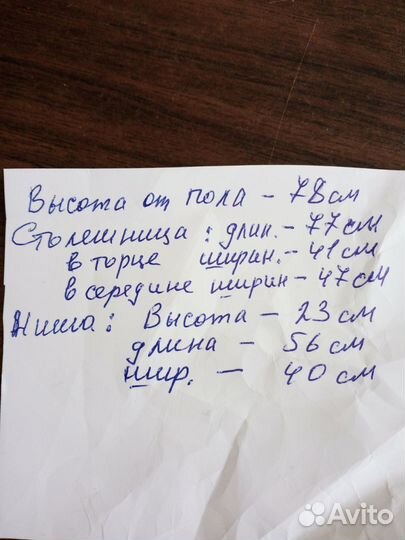 Высота от пола – 78см
Столешница: длин. – 77 см
в торце ширин. – 41 см
в середине ширин – 47 см
Ниша: Высота – 23 см
длина – 56 см
шир. – 40 см
Avito